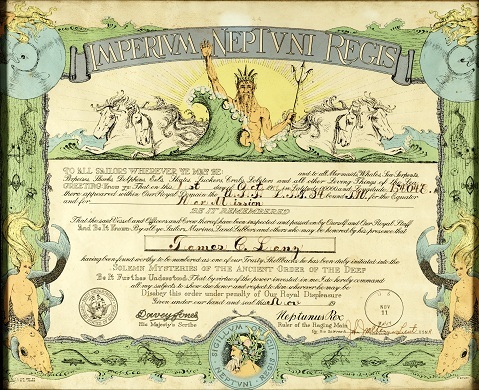 IMPERIVM NEPTVNI REGIS
TO ALL SAILORS WHEREVER YE MAY BE: and to all Mermaids, Whales, Sea Serpents,
Porpoises, Sharks, Dolphins, Eels, Skates, Suckers, Crabs, Lobsters and all other Living Things of the Sea
GREETING: Know ye: That on this 1st day of Oct. in Latitude 00000 and Longitude
there appeared within Our Royal Domain the U.S.S. bound for the Equator
and for War Mission
BE IT REMEMBERED
That the said Vessel and Officers and Crew thereof have been inspected and passed on by Ourself and Our Royal Staff
And Be It Known: By all ye Sailors, Marines, Land Lubbers and others who may be honored by his presence that
James C.
having been found worthy to be numbered as one of our Trusty Shellbacks he has been duly initiated into the
SOLEMN MYSTERIES OF THE ANCIENT ORDER OF THE DEEP
Be It Further Understood: That by virtue of the power invested in me I do hereby command
all my subjects to show due honor and respect to him wherever he may be.
Disobey this order under penalty of Our Royal Displeasure
Given under our hand and seal this Nov. 19
Davey Jones
His Majesty's Scribe
Neptunus Rex
Ruler of the Raging Main
By his Servant
USNR
NOV
11
SIGILLVM OFFICII
NEPTVNI REGIS